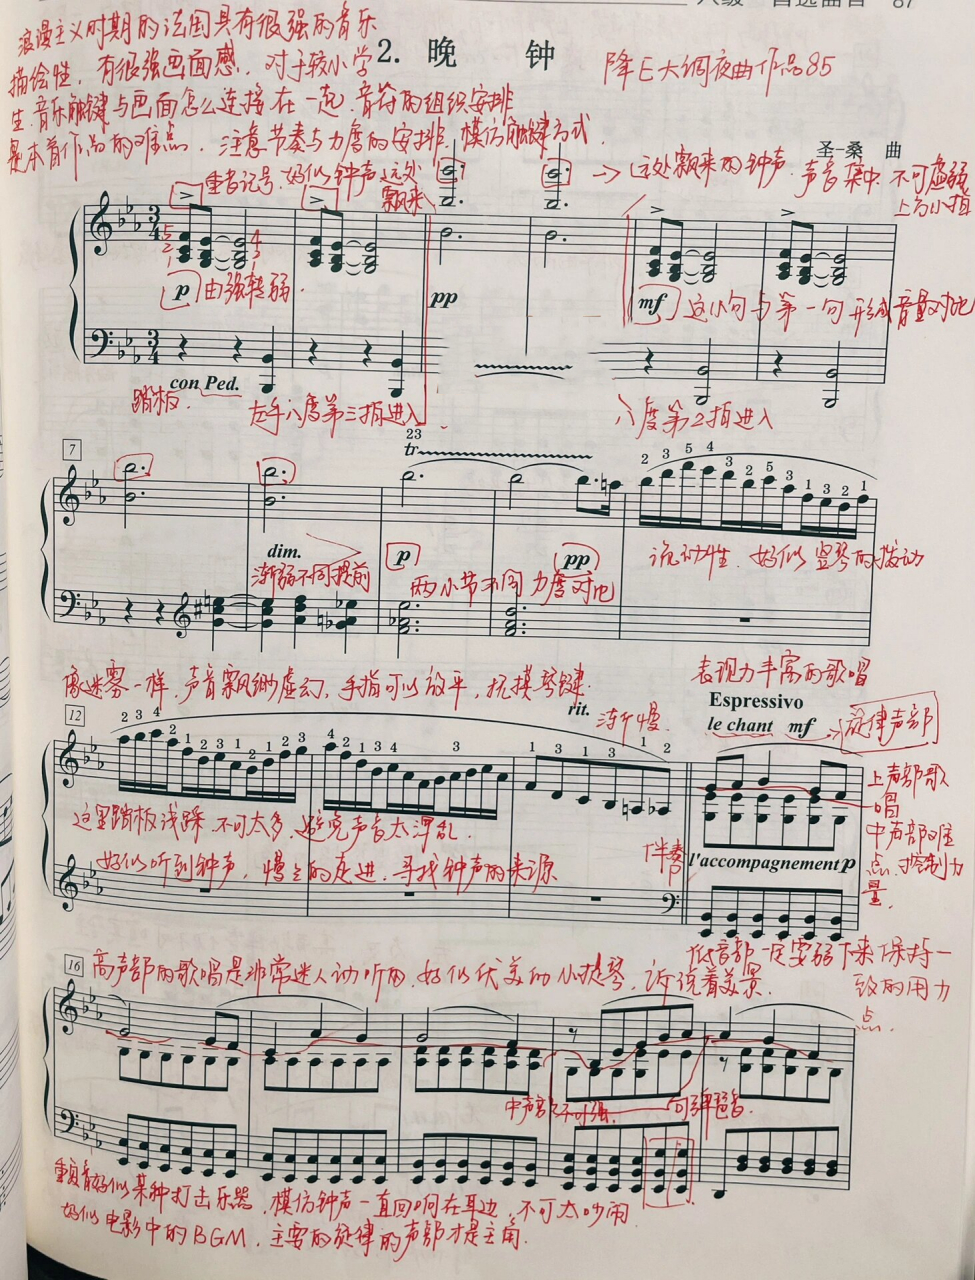 八级 自选曲目 87
浪漫主义时期的法国具有很强的音乐
描绘性，有很强画面感，对于较小学
生，音乐触键与画面怎么连接在一起，音符的组织安排
是本首作品的难点，注意节奏与力度的安排，模仿触键方式.
2. 晚 钟
降E大调夜曲作品85
圣-桑 曲
重音记号，好似钟声远处
飘来
→远处飘来的钟声，声音集中，不可虚弱
上方小指
3
4
5
2
1
4
p
由强转弱.
pp
mf
这小句与第一句形成音量对比
3
4
con Ped.
踏板.
左手八度第三拍进入.
八度第2拍进入
7
23
tr
2 3 5 4 3 2 5 3 1 3 2 1
dim.
渐弱不同提前
p
pp
两小节不同力度对比
流动性，好似竖琴的拨动
像迷雾一样，声音飘渺虚幻，手指可以放平，抚摸琴键.
表现力丰富的歌唱
rit.
渐慢
Espressivo
le chant mf
旋律声部
12
2 3 4 2 1 2 3 1 2 1 2 3
4 2 1 3 4 3
1 1 3 1 2
上声部歌
唱
中声部难
点，控制力
量.
这里踏板浅踩，不可太多，避免声音太浑乱.
好似听到钟声，慢慢的走进，寻找钟声的来源
伴奏
l'accompagnement p
低音部一定要弱下来保持一
致的用力
点.
16
高声部的歌唱是非常迷人动听的，好似优美的小提琴，诉说着美景.
中声部不可强
句弹琶音.
重复音好似某种打击乐器，模仿钟声一直回响在耳边，不可太吵闹
好似电影中的BGM，主要的旋律的声部才是主角.